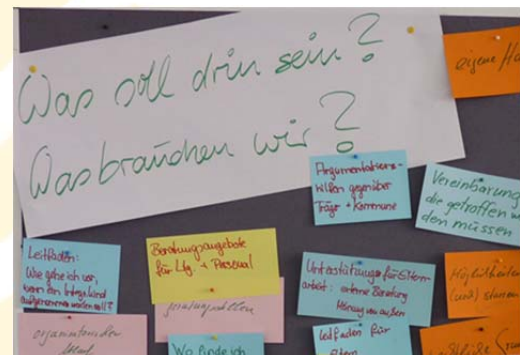 Was soll drin sein?
Was brauchen wir?
eigene
Argumentations-
hilfen gegenüber
Träger + Kommune
Vereinbarung
die getroffen
den müssen
Leitfaden:
Wie gehe ich vor,
wenn ein Integrakind
aufgenommen werden soll?
Beratungsangebote
für Ltg. + Personal
Unterstützung für Eltern
arbeit: externe Beratung
Meinung von außen
Möglichkeiten
(und)
Wo finde ich
Leitfaden für
Eltern